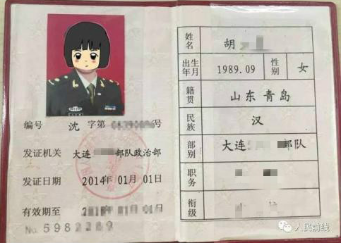 编号 沈 字第 号
发证机关 大连 部队政治部
发证日期 2014年01月01日
有效期至 年01月01日
No 5982289
姓名 胡
出生年月 1989.09 性别 女
籍贯 山东青岛
民族 汉
部别 大连 部队
职务
衔级
人民前线